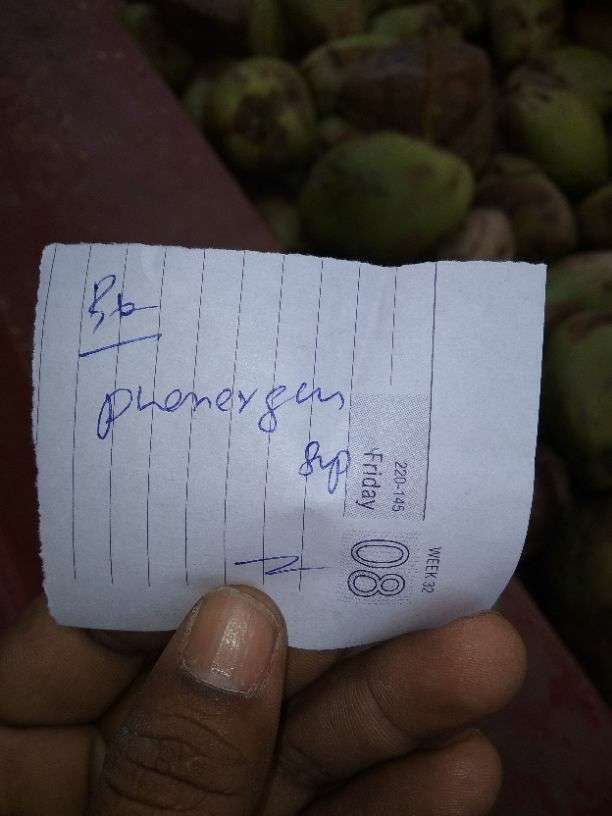 Rx
phenergen
syp
220-145
Friday
08
WEEK 32